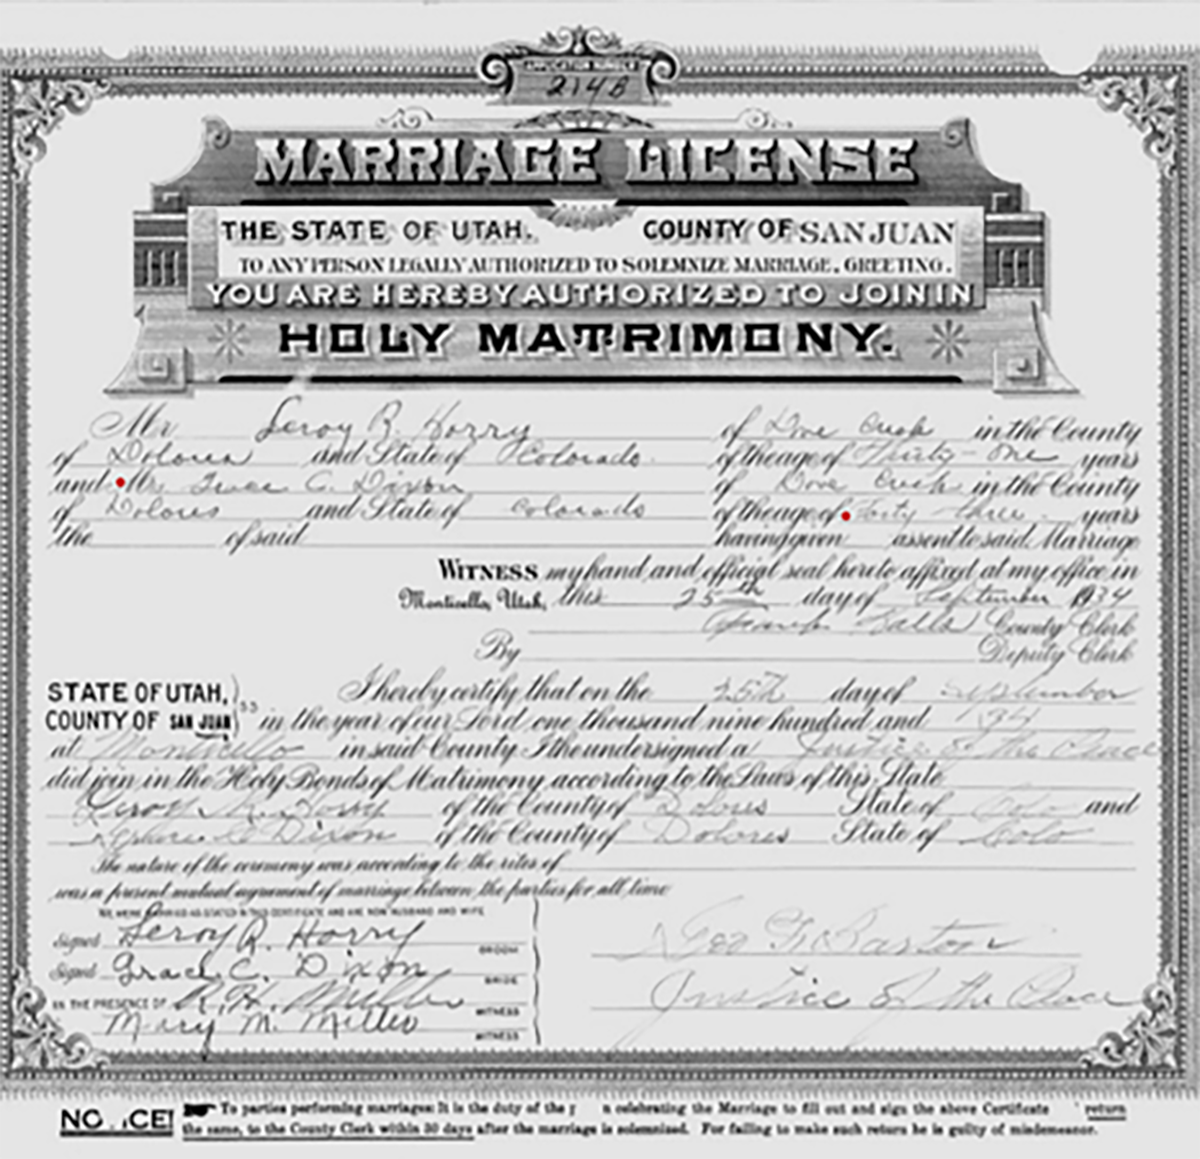 APPLICATION NUMBER
2148
MARRIAGE LICENSE
THE STATE OF UTAH. COUNTY OF SAN JUAN
TO ANY PERSON LEGALLY AUTHORIZED TO SOLEMNIZE MARRIAGE, GREETING.
YOU ARE HEREBY AUTHORIZED TO JOIN IN
HOLY MATRIMONY.
Mr Leroy R. Horry of Dove Creek in the County
of Dolores and State of Colorado. of the age of Thirty-one years
and Mr. Grace C. Dixon of Dove Creek in the County
of Dolores and State of Colorado of the age of Forty three years
the of said having given assent to said Marriage
WITNESS my hand and official seal hereto affixed at my office in
Monticello, Utah, this 25th day of September 1934
County Clerk
By Deputy Clerk
STATE OF UTAH, I hereby certify that on the 25th day of September
COUNTY OF SAN JUAN } ss in the year of our Lord one thousand nine hundred and 34
at Monticello in said County I the undersigned a Justice of the Peace
did join in the Holy Bonds of Matrimony according to the Laws of this State
Leroy R. Horry of the County of Dolores State of Colo and
Grace C Dixon of the County of Dolores State of Colo
The nature of the ceremony was according to the rites of
was a present mutual agreement of marriage between the parties for all time
WE WERE MARRIED AS STATED IN THIS CERTIFICATE AND ARE NOW HUSBAND AND WIFE
Signed Leroy R. Horry GROOM
Signed Grace C. Dixon BRIDE
IN THE PRESENCE OF R. H. Miller WITNESS
Mary M. Miller WITNESS
Geo F. Barton
Justice of the Peace
NO ICE! To parties performing marriages: It is the duty of the p n celebrating the Marriage to fill out and sign the above Certificate return
the same, to the County Clerk within 30 days after the marriage is solemnized. For failing to make such return he is guilty of misdemeanor.